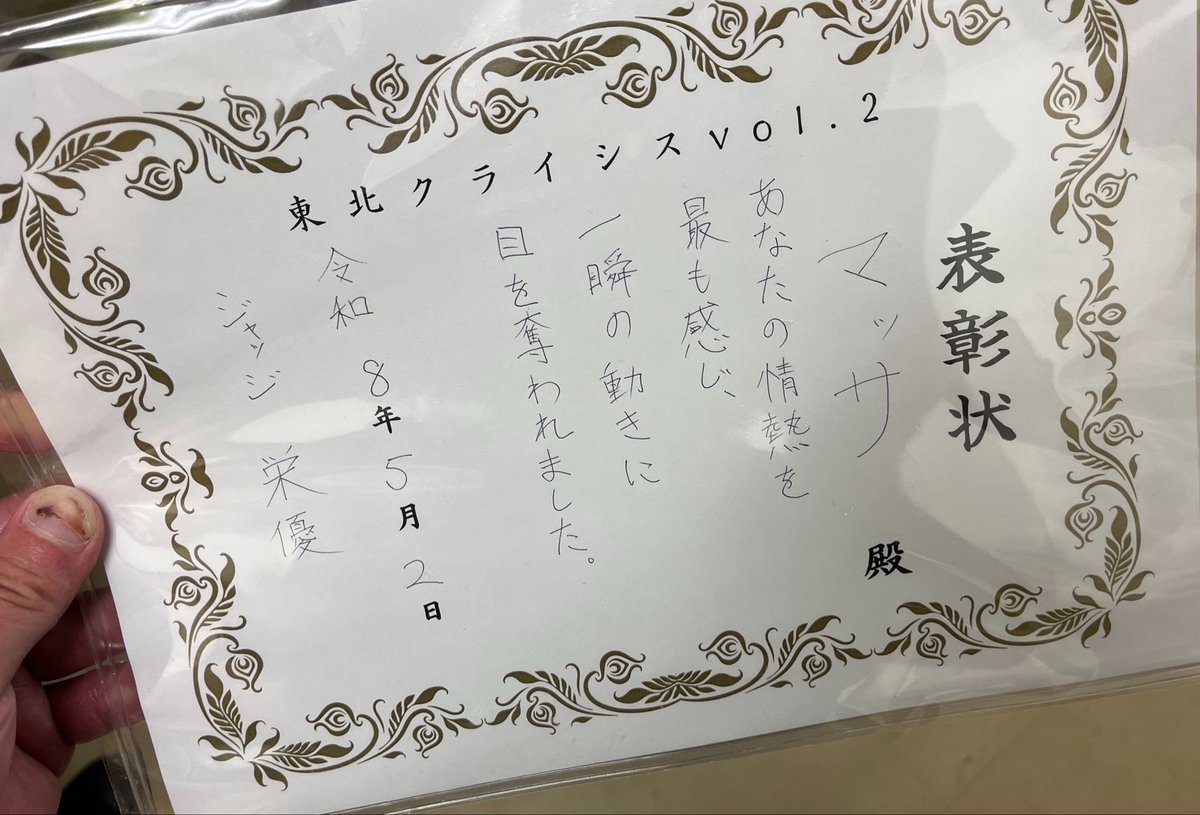 表彰状
マッサ 殿
あなたの情熱を
最も感じ、
一瞬の動きに
目を奪われました。
令和8年5月2日
ジャッジ 栄優
東北クライシスvol.2